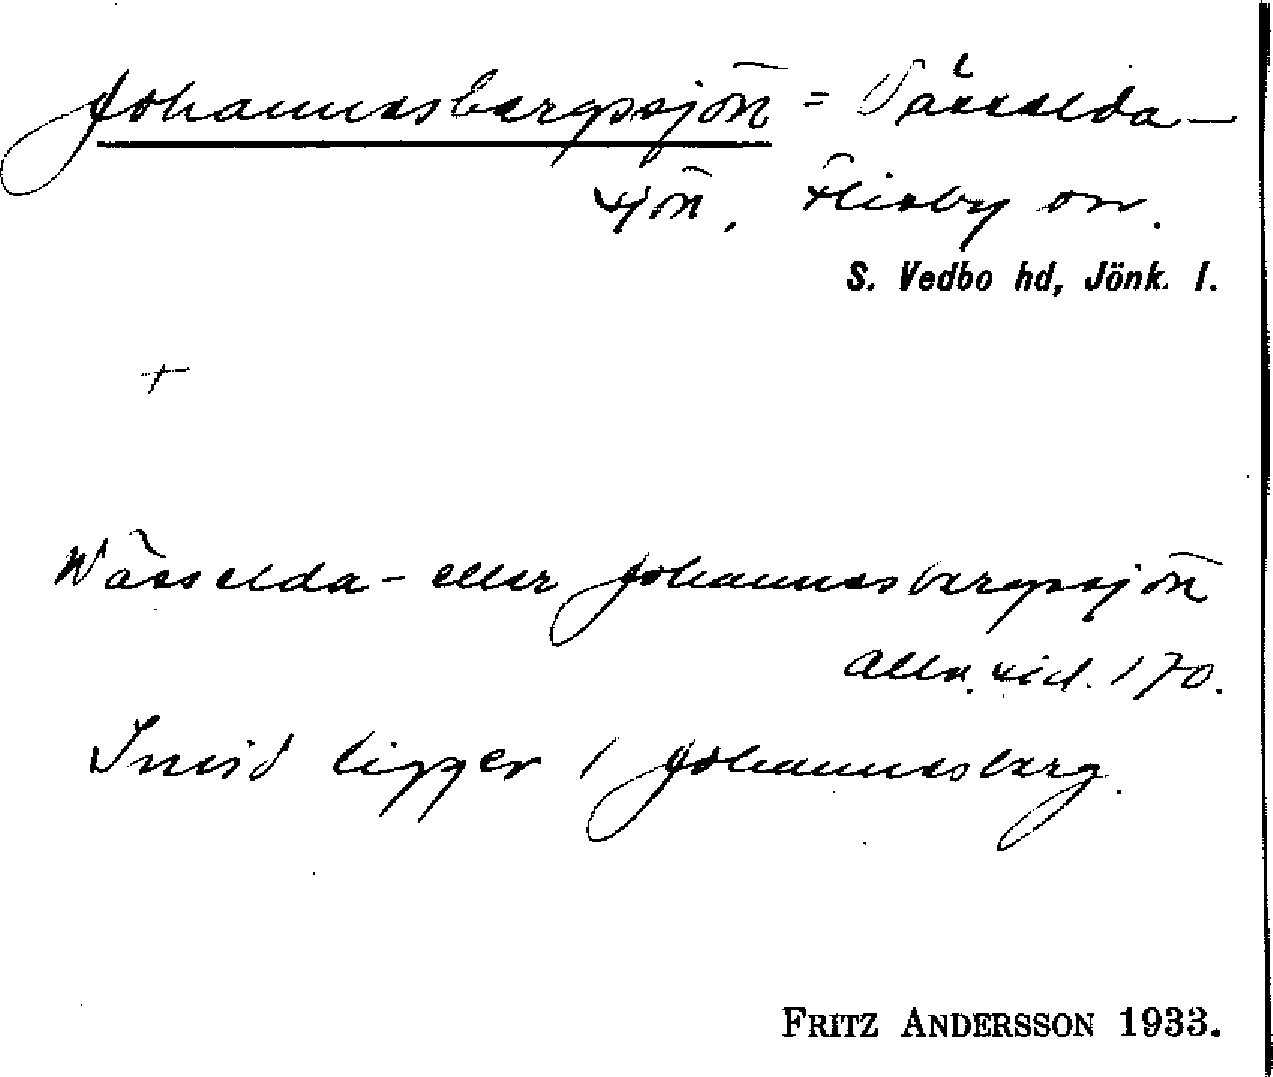 Johannesbergssjön = Vässelda-
sjön, Flisby sn.
S. Vedbo hd, Jönk. l.
+
Wässelda- eller Johannesbergssjön
Allv. sid. 170.
Invid ligger / Johannesberg.
FRITZ ANDERSSON 1933.